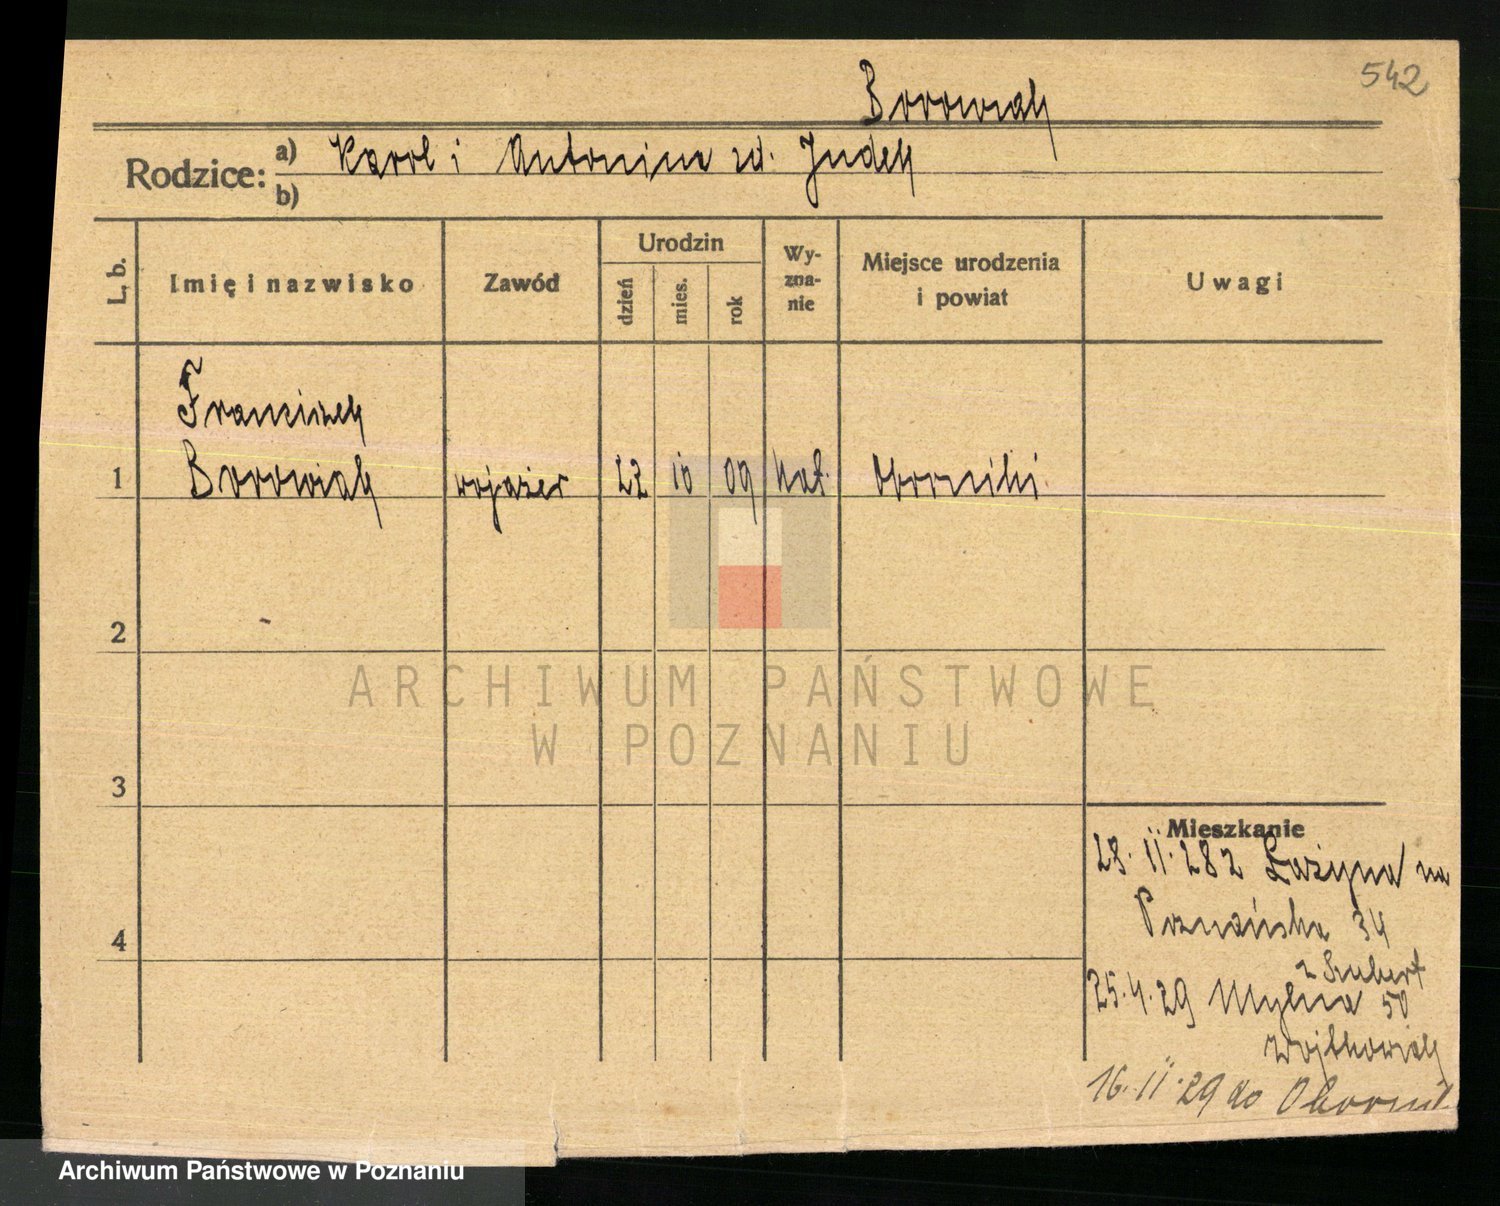 542
Borowiak
Rodzice: a) Karol i Antonina zd. Judek
b)
L. b.
Imię i nazwisko
Zawód
Urodzin
dzień
mies.
rok
Wy-
zna-
nie
Miejsce urodzenia
i powiat
Uwagi
Franciszek
1 Borowiak wojażer 22 10 09 kat. Oborniki
2
3
4
ARCHIWUM PAŃSTWOWE
W POZNANIU
Mieszkanie
28. 11. 28 z
na
Poznańska 34
z Szubert
25. 4. 29 Mylna 50
Wojtkowiak
16. 11. 29 do Obornik
Archiwum Państwowe w Poznaniu